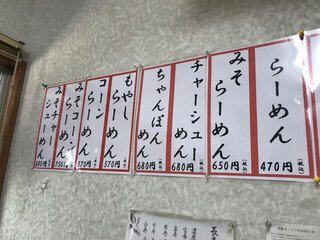 らーめん
470円(税込)
みそらーめん
650円(税込)
チャーシューめん
680円(税込)
ちゃんぽんめん
680円(税込)
もやしらーめん
570円(税込)
コーンらーめん
570円(税込)
みそコーンらーめん
750円(税込)
みそチャーシューめん